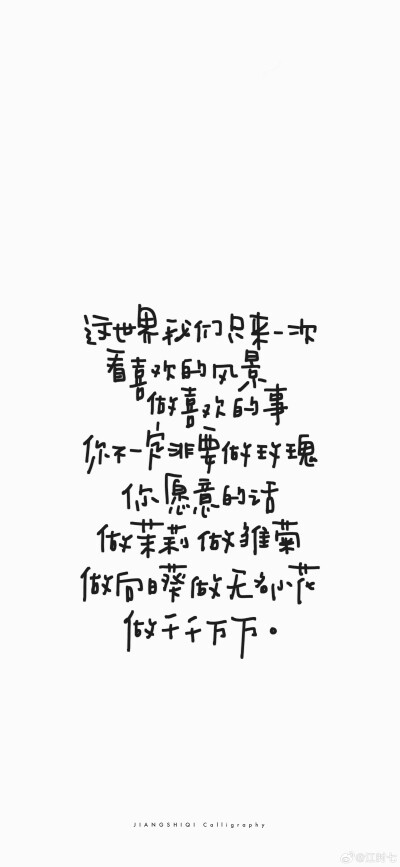 这世界我们只来一次
看喜欢的风景
做喜欢的事
你不一定非要做玫瑰
你愿意的话
做茉莉做雏菊
做向日葵做无名小花
做千千万万。
JIANGSHIQI Calligraphy
@江时七